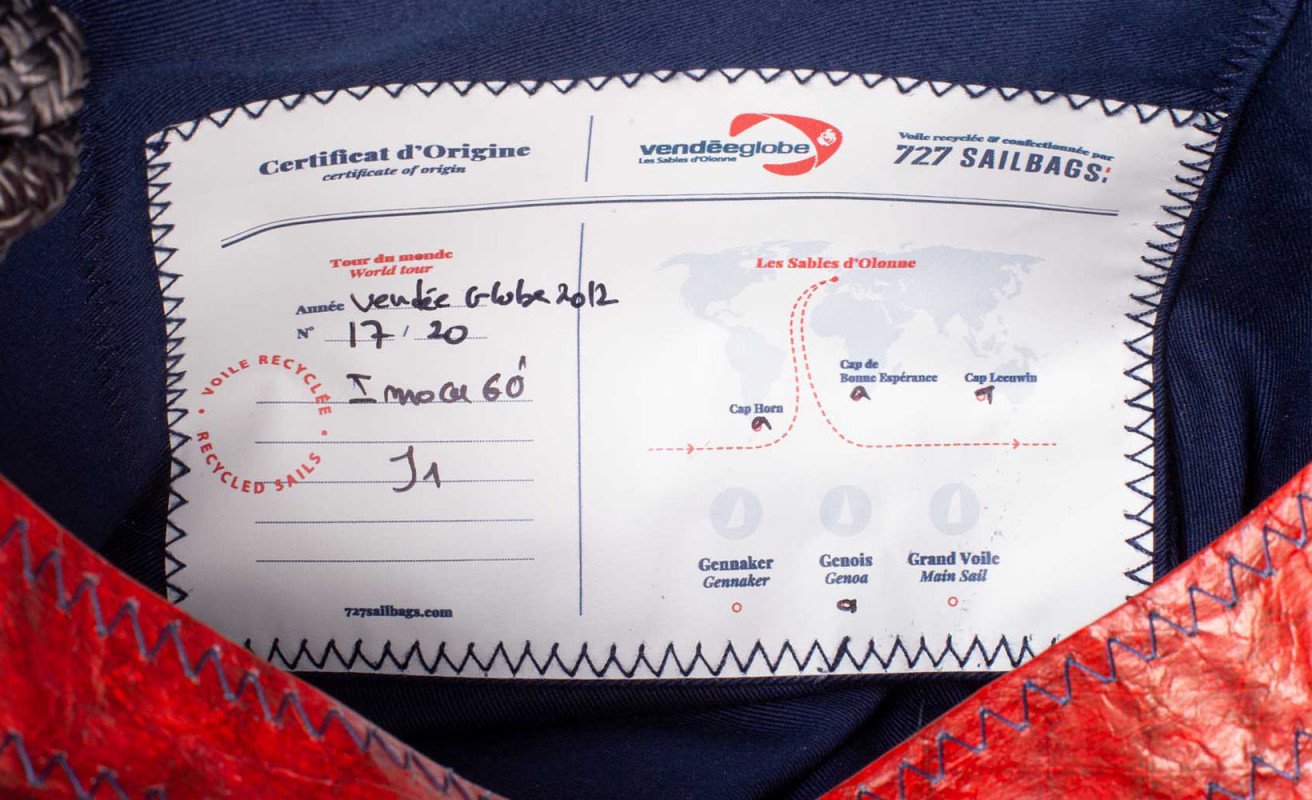 Certificat d'Origine
certificate of origin
vendéeglobe
Les Sables d'Olonne
Voile recyclée & confectionnée par
727 SAILBAGS:
Tour du monde
World tour
Année Vendée Globe 2012
N° 17 / 20
Imoca 60'
J1
• VOILE RECYCLÉE •
RECYCLED SAILS
727sailbags.com
Les Sables d'Olonne
Cap de
Bonne Espérance
Cap Leeuwin
Cap Horn
Gennaker
Gennaker
Genois
Genoa
Grand Voile
Main Sail